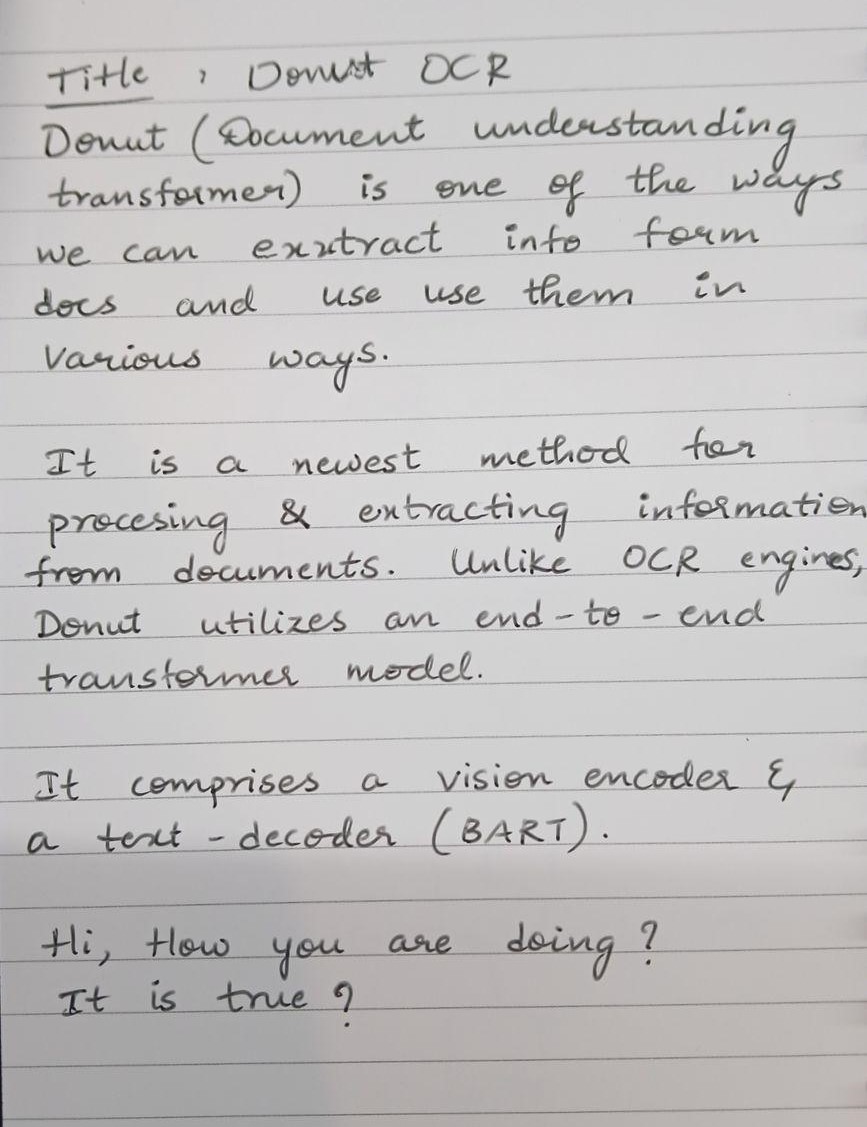 Title : Donut OCR
Donut (Document understanding
transformer) is one of the ways
we can exxtract info form
docs and use use them in
various ways.
It is a newest method for
procesing & extracting information
from documents. Unlike OCR engines,
Donut utilizes an end-to-end
transformer model.
It comprises a vision encoder &
a text-decoder (BART).
Hi, How you are doing?
It is true?